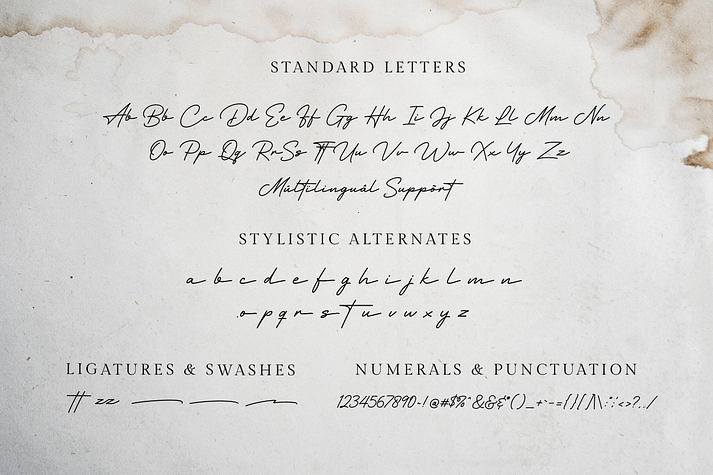 STANDARD LETTERS
Aa Bb Cc Dd Ee Ff Gg Hh Ii Jj Kk Ll Mm Nn
Oo Pp Qq Rr Ss Tt Uu Vv Ww Xx Yy Zz
Múltilinguâl Suppórt
STYLISTIC ALTERNATES
a b c d e f g h i j k l m n
o p q r s t u v w x y z
LIGATURES & SWASHES
tt zz
NUMERALS & PUNCTUATION
1234567890